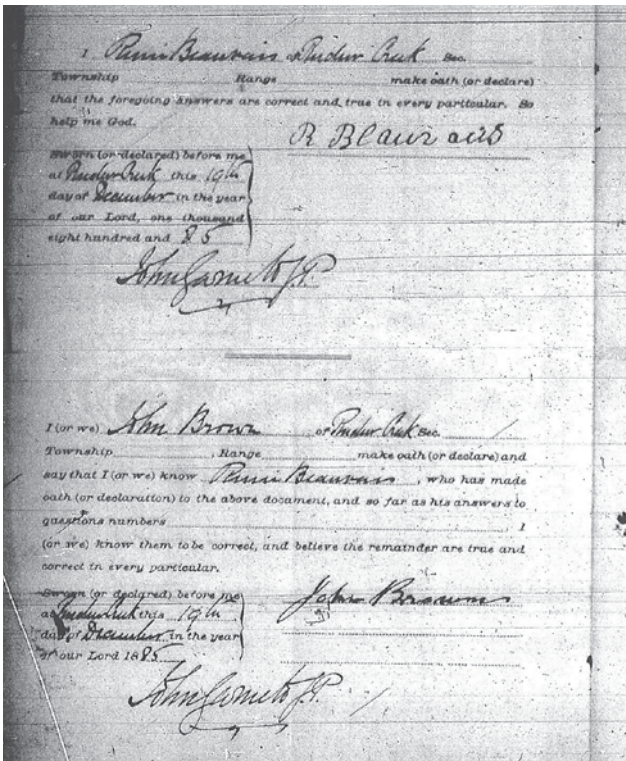 I Remi Beauvais of Pincher Creek Sec.
Township Range make oath (or declare)
that the foregoing answers are correct and true in every particular. So
help me God.
R Blauvais
Sworn (or declared) before me
at Pincher Creek this 19th
day of December in the year
of our Lord, one thousand
eight hundred and 85
John Garnett J.P.
I (or we) John Brown of Pincher Creek Sec.
Township , Range make oath (or declare) and
say that I (or we) know Remi Beauvais , who has made
oath (or declaration) to the above document, and so far as his answers to
questions numbers I
(or we) know them to be correct, and believe the remainder are true and
correct in every particular.
Sworn (or declared) before me
John Brown
at Pincher Creek this 19th
day of December in the year
of our Lord 1885
John Garnett J.P.